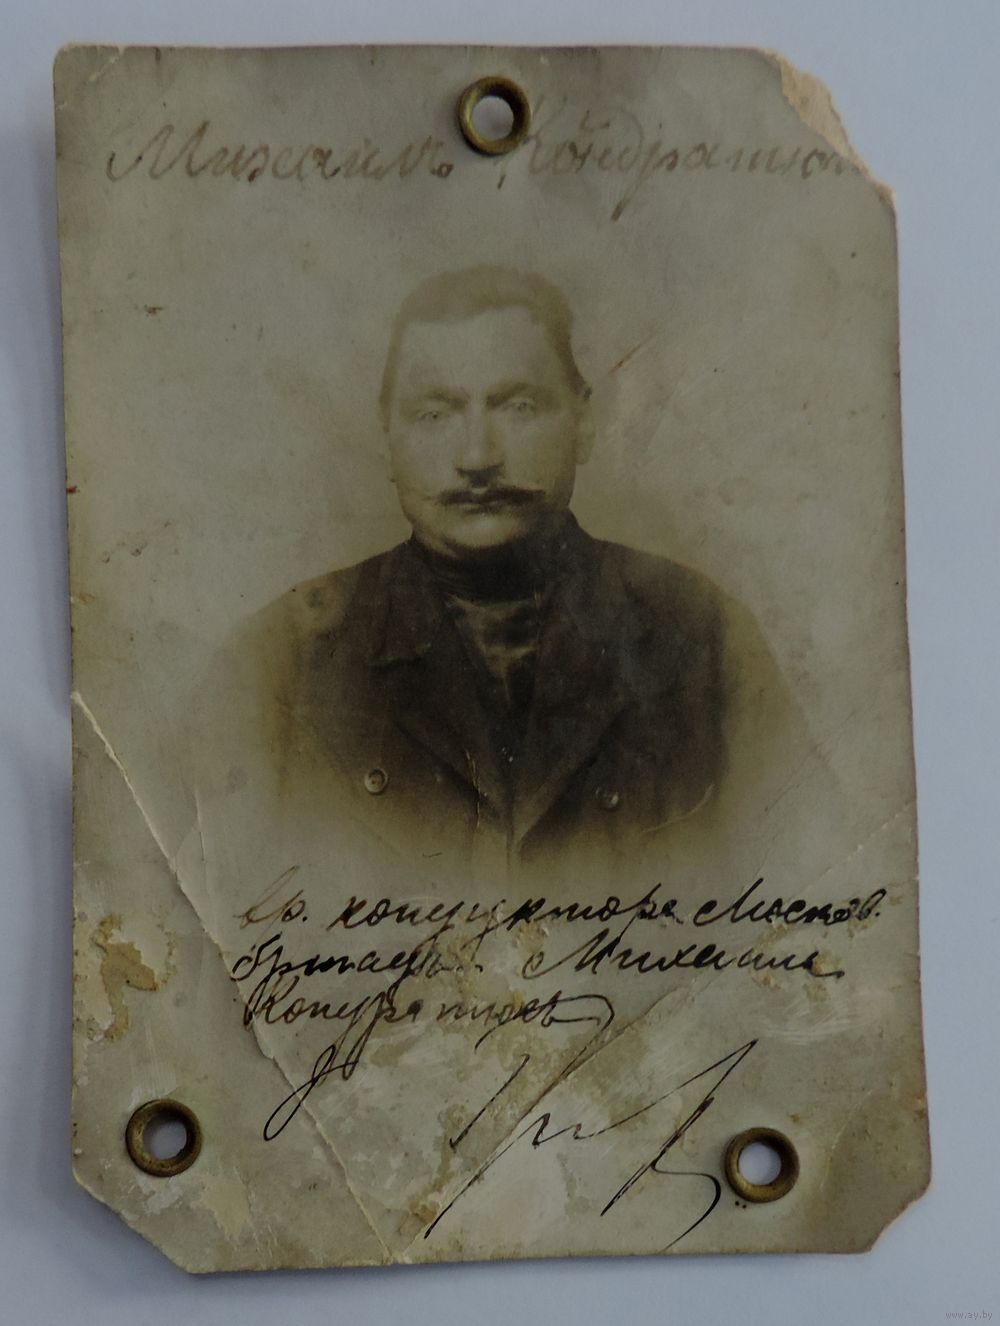 Михаилъ Кондратюк
вр. кондуктора Москов.
бригады Михаилъ
Кондратюкъ
www.ay.by